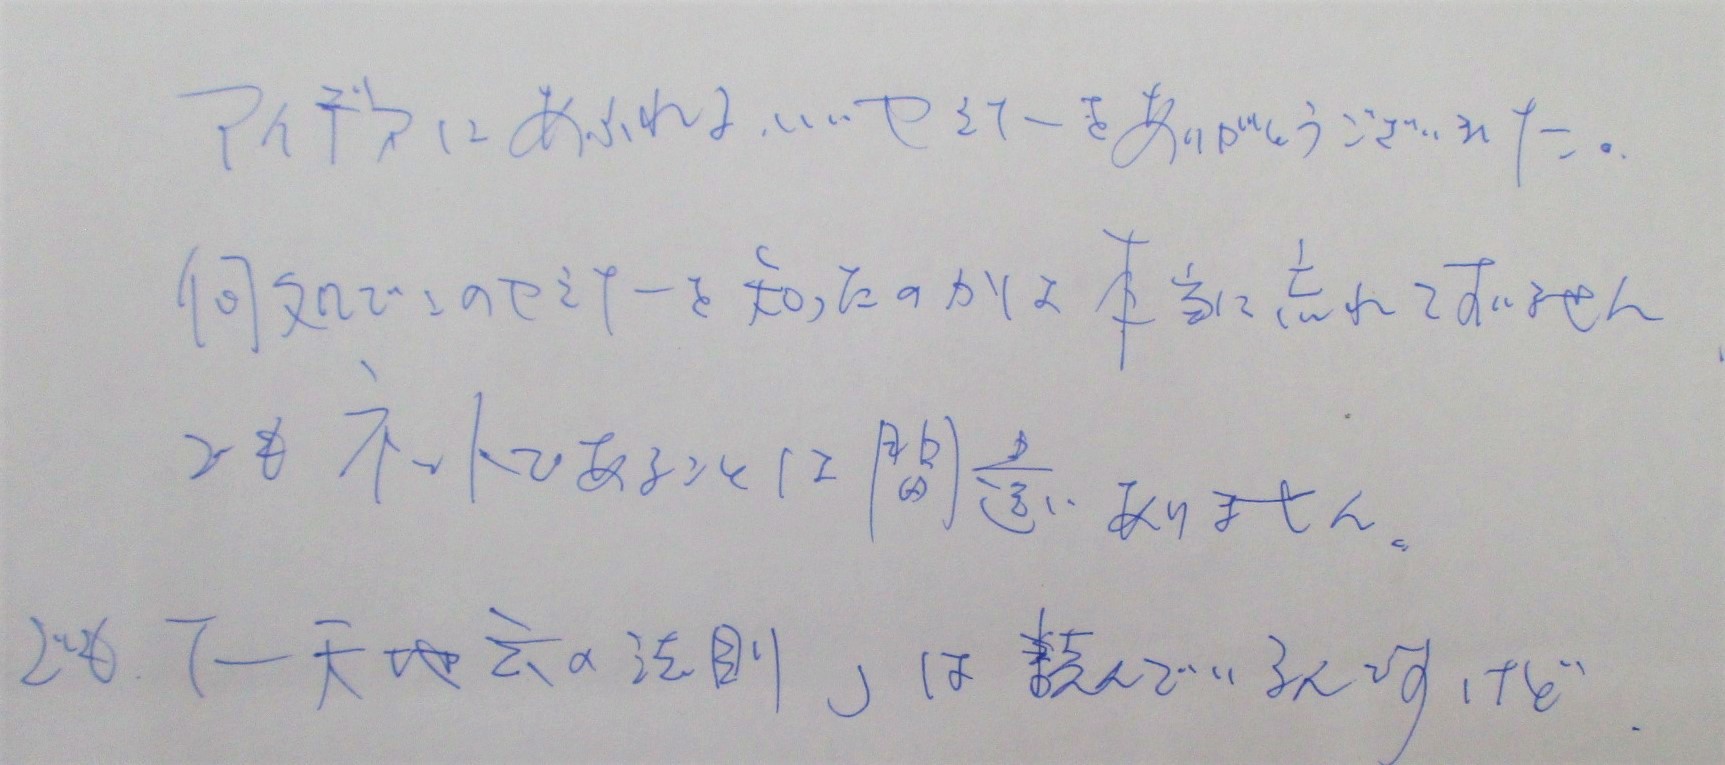 アイデアにあふれるいいセミナーをありがとうございました。
何処でこのセミナーを知ったのかは本当に忘れてすいません
でもネットであることに間違いありません。
でも「一天地六の法則」は読んでいるんですけど.